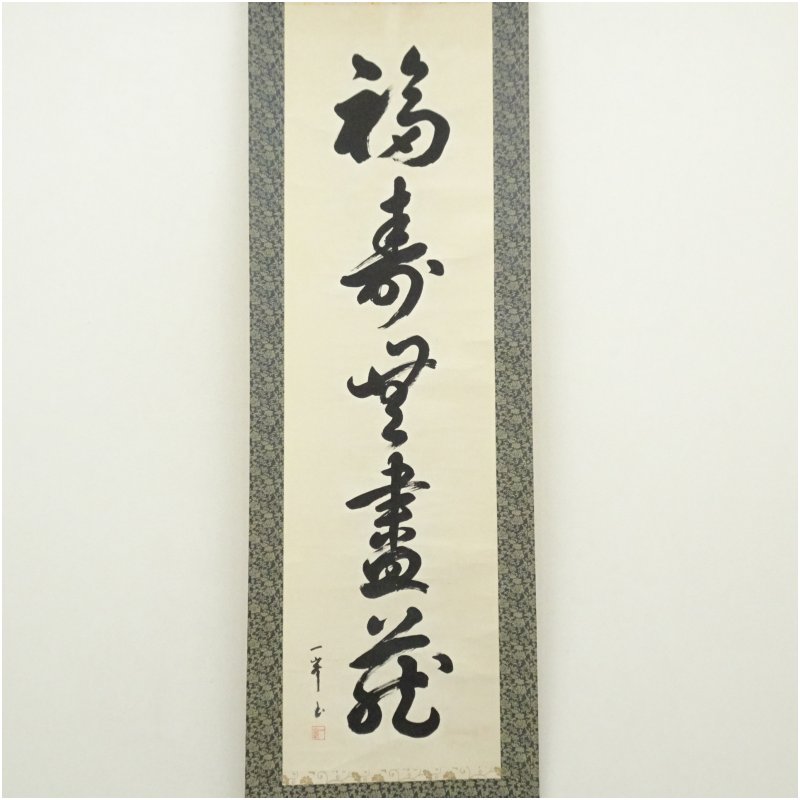 福壽無盡藏
一峯書